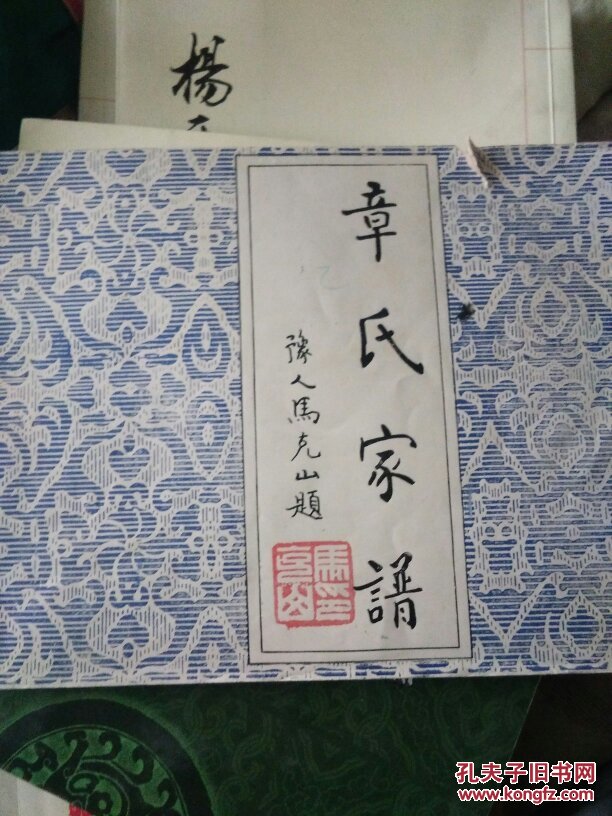 楊
章氏家譜
豫人馬克山題
孔夫子旧书网
www.kongfz.com